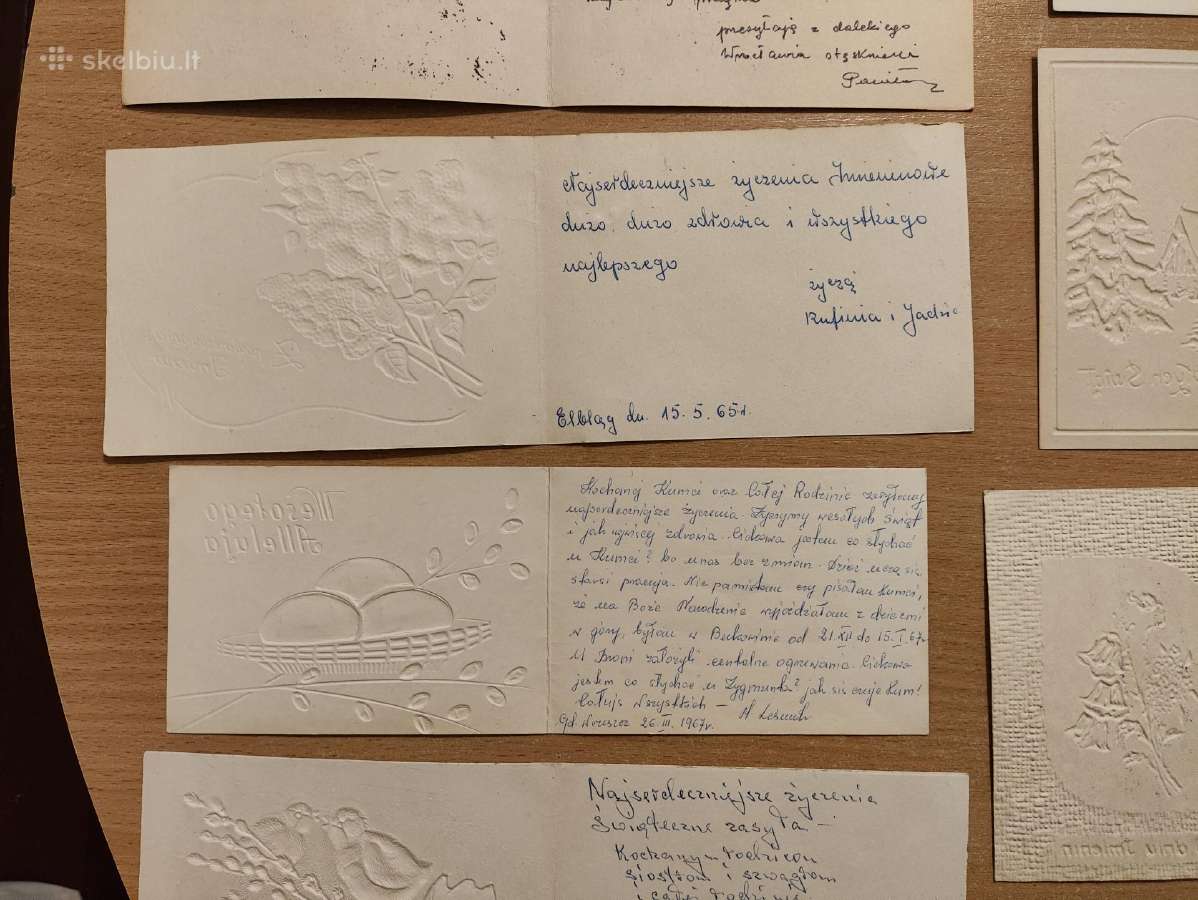 skelbiu.lt
przesyłają z dalekiego
Wrocławia stęsknieni
Najserdeczniejsze życzenia Imieninowe
dużo, dużo zdrowia i wszystkiego
najlepszego
życzą
Rufinia i Jadzia
Elbląg dn. 15.5.65r.
Wesołego
Alleluja
Kochanej Kumci oraz Całej Rodzinie zasyłamy
najserdeczniejsze życzenia. Życzymy wesołych Świąt
i jak najwięcej zdrowia. Ciekawa jestem co słychać
u Kumci? bo u nas bez zmian. Dzieci uczą się,
starsi pracują. Nie pamiętam czy pisałam Kumci,
że na Boże Narodzenie wyjeżdżałam z dziećmi
w góry, byłam w od 21 XII do 15 I 67r
U Broni założyli centralne ogrzewanie. Ciekawa
jestem co słychać u Zygmunta? jak się czuje Kum?
Całuję Wszystkich –
Gd. Wrzeszcz 26 III. 1967r.
Najserdeczniejsze życzenia
Świąteczne zasyła –
Kochanym rodzicom
siostrom i szwagrom
i całej rodzinie
dniu Imienin